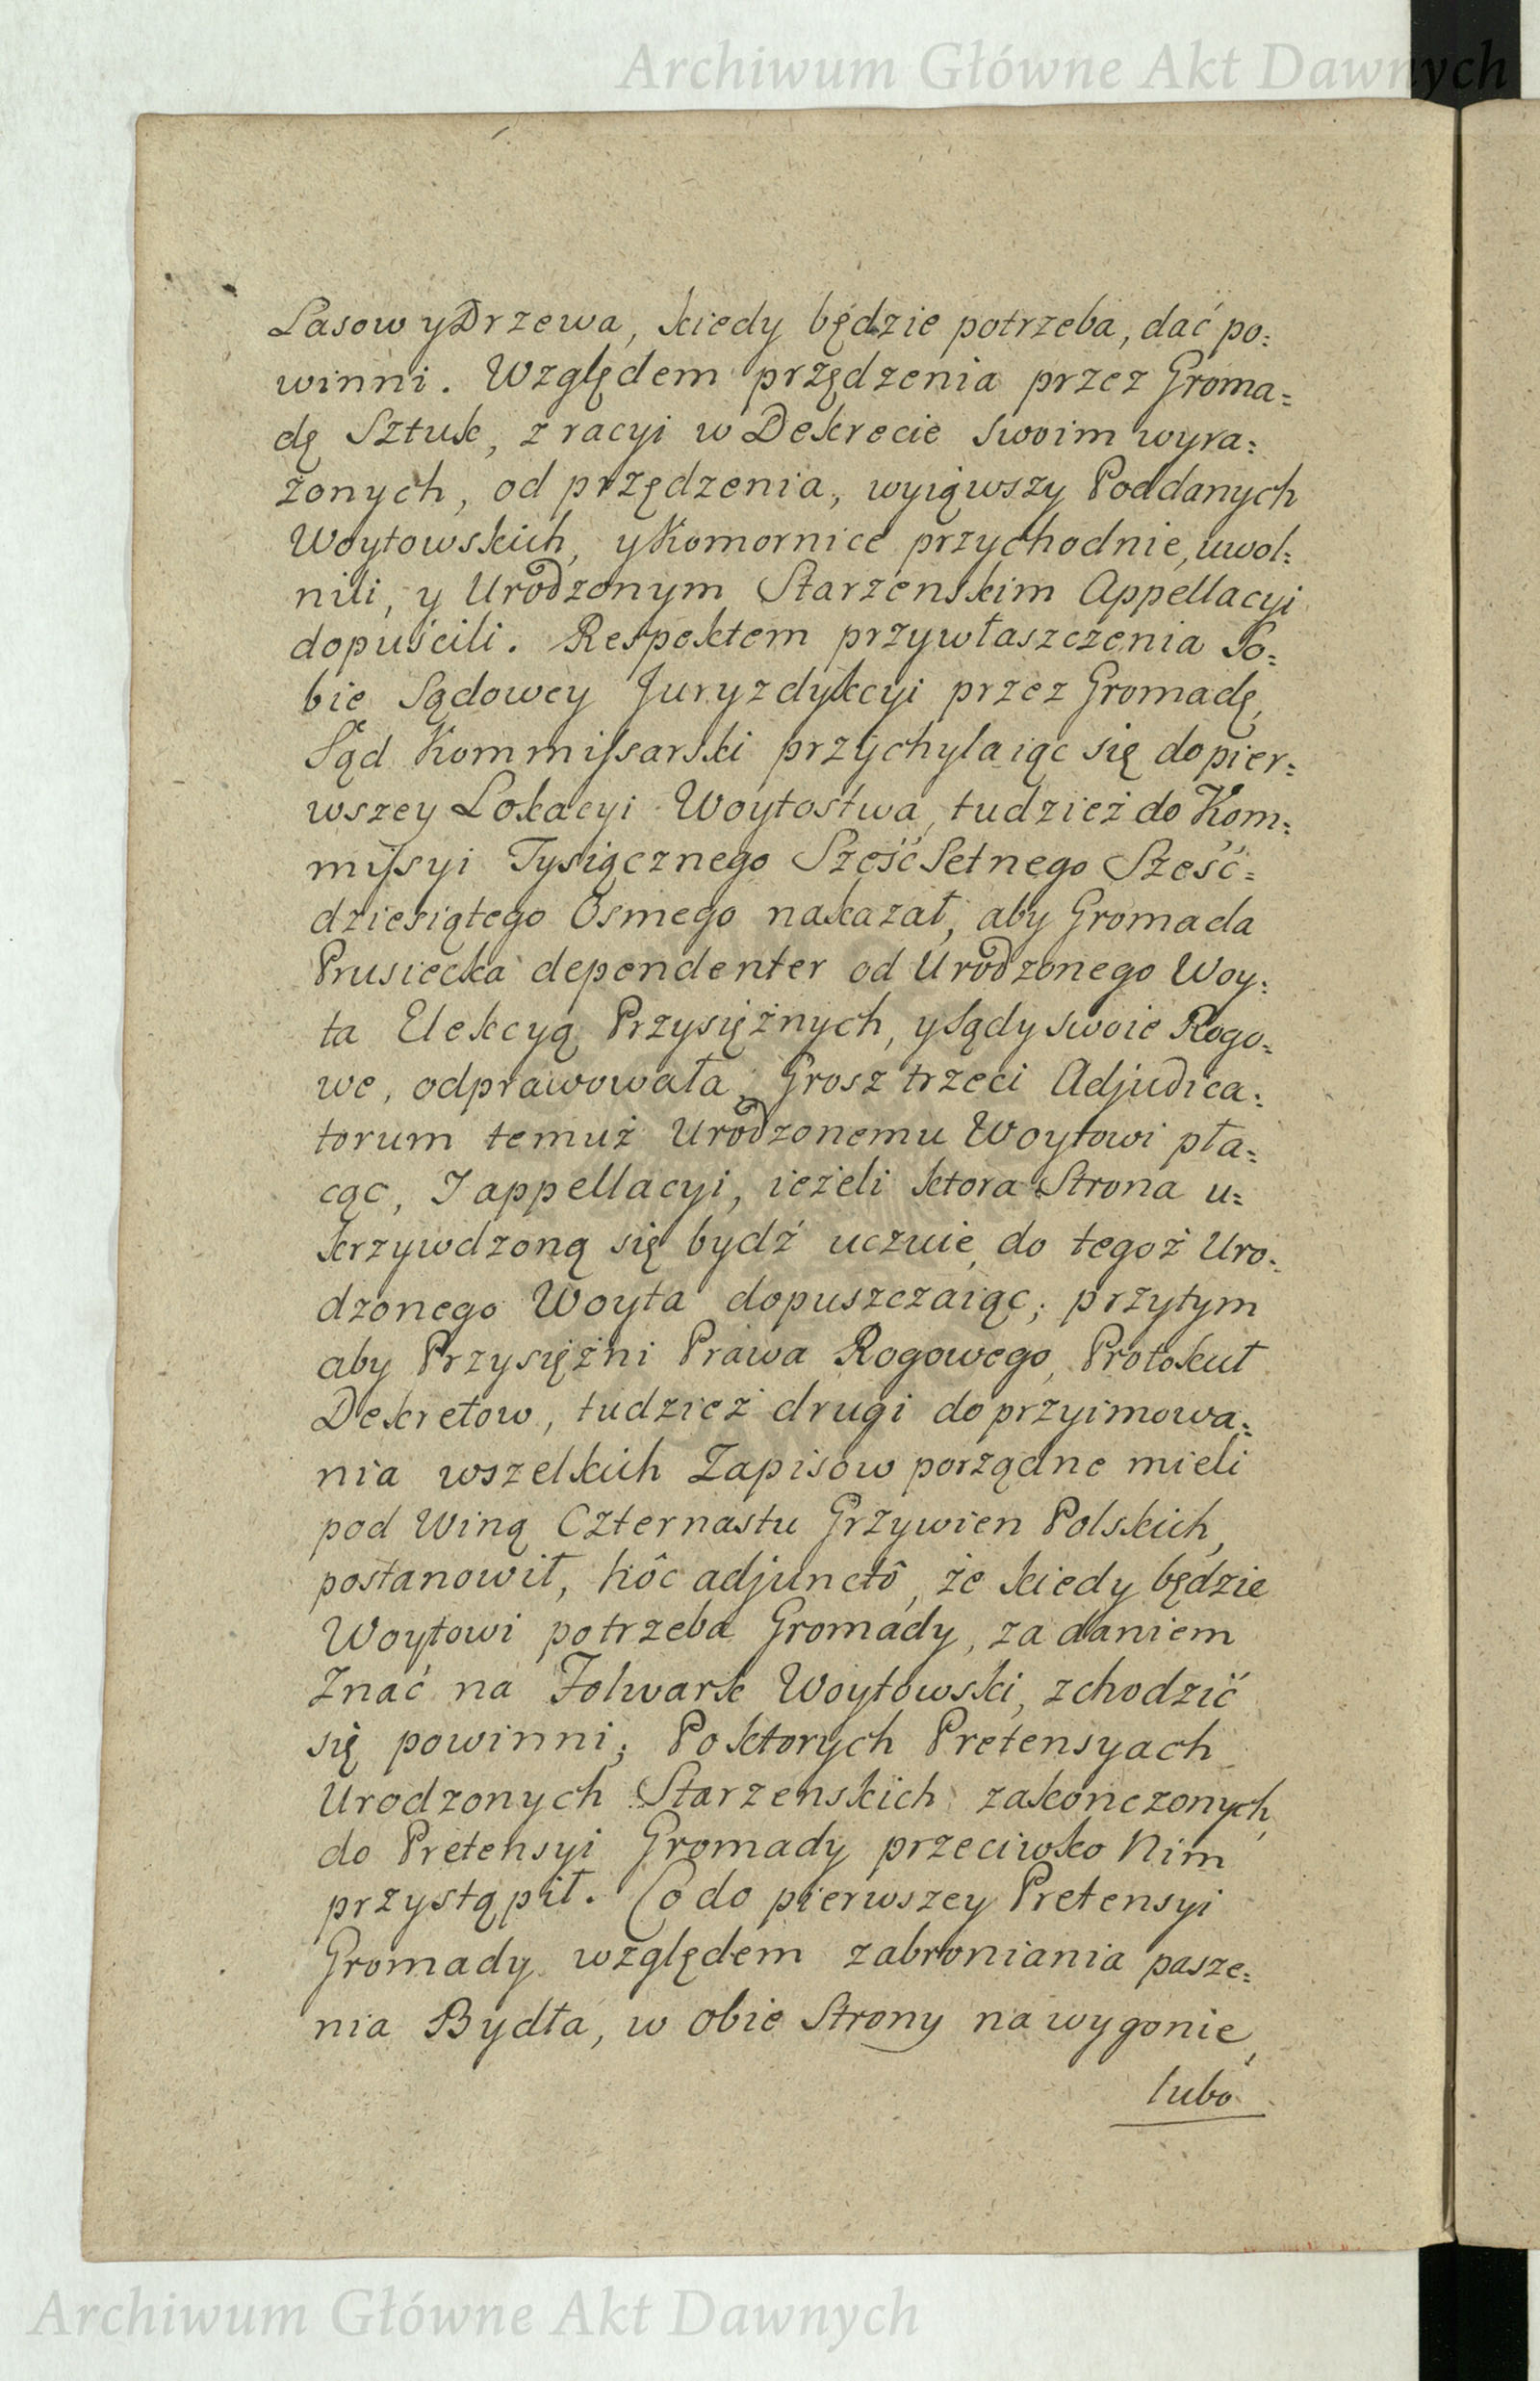 Archiwum Główne Akt Dawnych
Lasow y Drzewa, kiedy będzie potrzeba, dać po=
winni. Względem przędzenia przez Groma=
dę Sztuk, z racyi w Dekrecie swoim wyra=
żonych, od przędzenia, wyiąwszy Poddanych
Woytowskich, y Komornice przychodnie, uwol=
nili, y Urodzonym Starzenskim Appellacyi
dopuścili. Respektem przywłaszczenia So=
bie Sądowey Juryzdykcyi przez Gromadę,
Sąd Kommissarski przychylaiąc się do pier=
wszey Lokacyi Woytostwa, tudzież do Kom=
missyi Tysiącznego Sześćsetnego Sześć=
dziesiątego Osmego nakazał, aby Gromada
Prusiecka dependenter od Urodzonego Woy=
ta Elekcyą Przysiężnych, y Sądy swoie Rogo=
we, odprawowała, Grosz trzeci Adjudica=
torum temuż Urodzonemu Woytowi pła=
cąc, I appellacyi, ieżeli ktora Strona u=
krzywdzoną się bydź uczuie, do tegoż Uro=
dzonego Woyta dopuszczaiąc; przytym
aby Przysiężni Prawa Rogowego, Protokuł
Dekretow, tudzież drugi do przyimowa=
nia wszelkich Zapisow porządne mieli
pod Winą Czternastu Grzywien Polskich,
postanowił, hôc adjunctô, że kiedy będzie
Woytowi potrzeba Gromady, za daniem
Znać na Folwark Woytowski, zchodzić
się powinni; Po ktorych Pretensyach
Urodzonych Starzenskich zakonczonych,
do Pretensyi Gromady przeciwko Nim
przystąpił. Co do pierwszey Pretensyi
Gromady względem zabroniania pasze=
nia Bydła, w obie Strony na wygonie,
lubo
Archiwum Główne Akt Dawnych